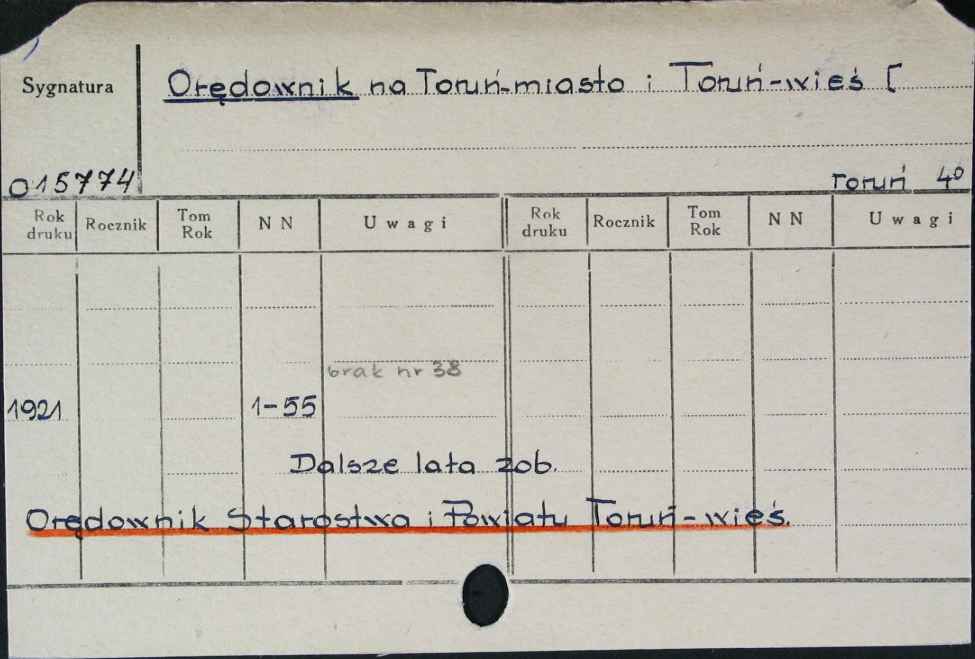 Sygnatura
Orędownik na Toruń-miasto i Toruń-wieś [
015774
Toruń 4º
Rok druku Rocznik Tom Rok NN Uwagi Rok druku Rocznik Tom Rok NN Uwagi
brak nr 38
1921 1-55
Dalsze lata zob.
Orędownik Starostwa i Powiatu Toruń-wieś.